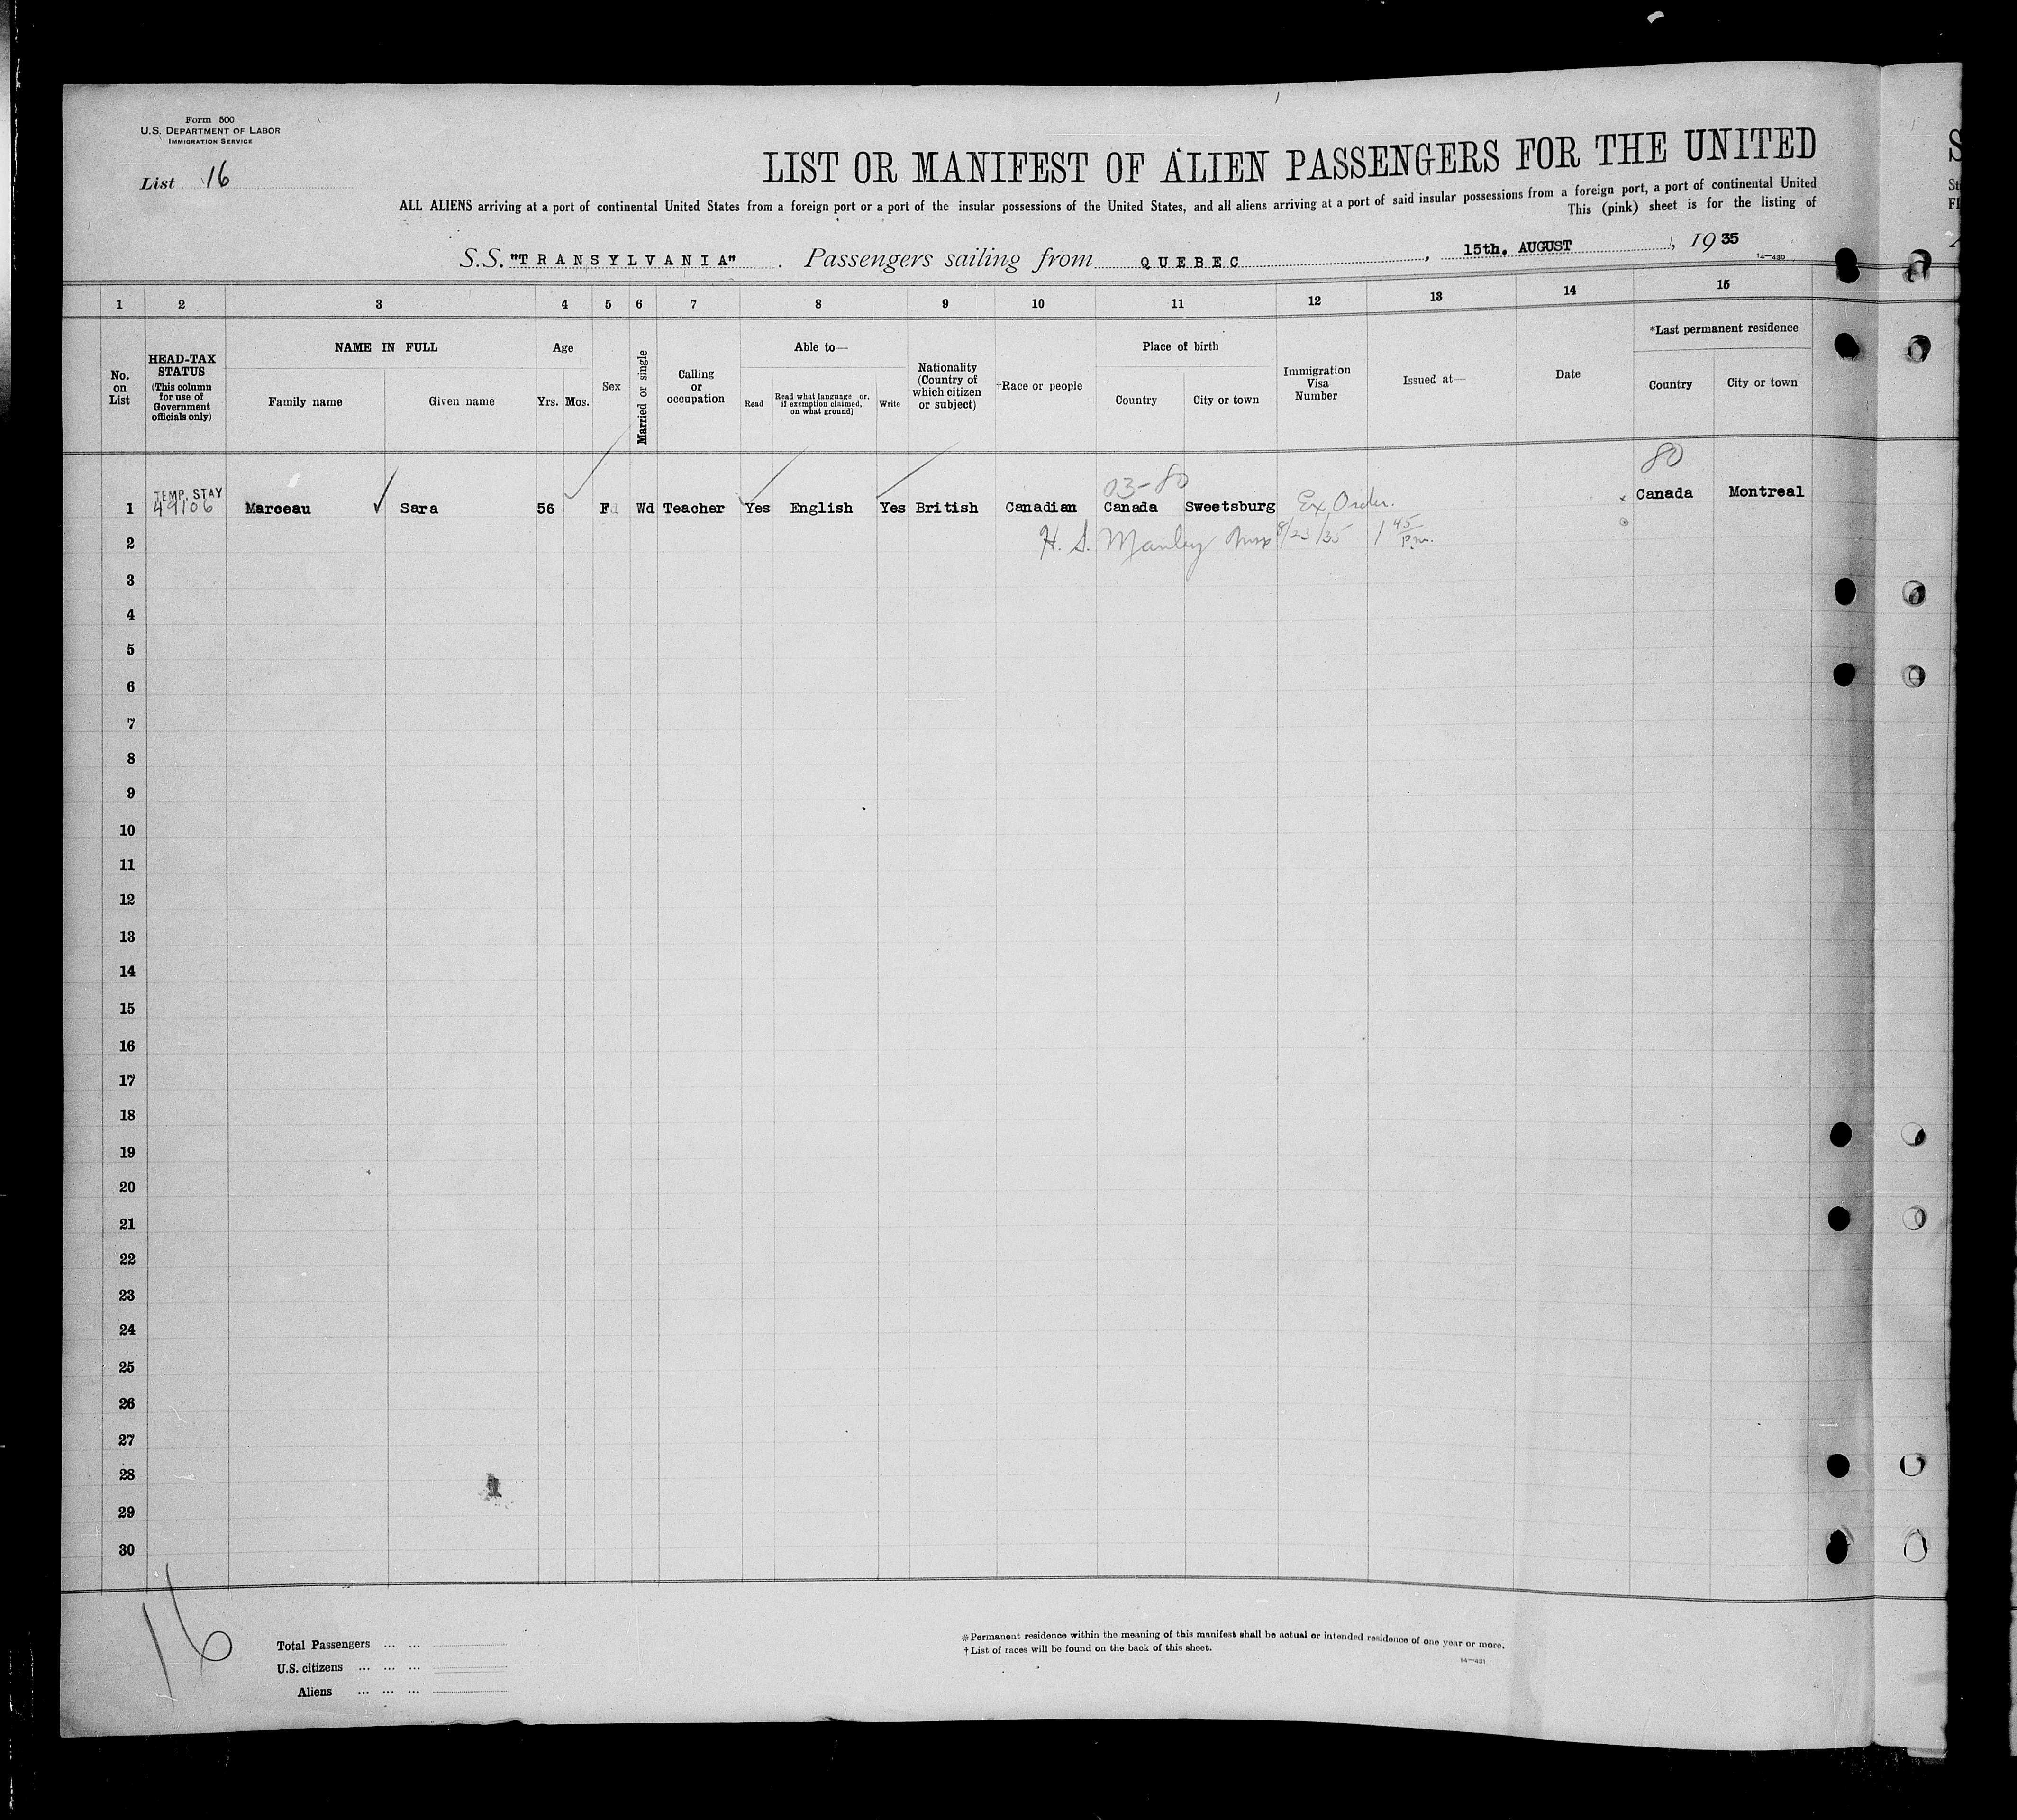 Form 500
U.S. DEPARTMENT OF LABOR
IMMIGRATION SERVICE
List 16
LIST OR MANIFEST OF ALIEN PASSENGERS FOR THE UNITED
ALL ALIENS arriving at a port of continental United States from a foreign port or a port of the insular possessions of the United States, and all aliens arriving at a port of said insular possessions from a foreign port, a port of continental United
This (pink) sheet is for the listing of
S.S. "TRANSYLVANIA". Passengers sailing from QUEBEC, 15th. AUGUST, 1935
14-430
1 2 3 4 5 6 7 8 9 10 11 12 13 14 15
No. on List
HEAD-TAX STATUS (This column for use of Government officials only)
NAME IN FULL
Family name Given name
Age
Yrs. Mos.
Sex
Married or single
Calling or occupation
Able to—
Read
Read what language or, if exemption claimed, on what ground)
Write
Nationality (Country of which citizen or subject)
†Race or people
Place of birth
Country City or town
Immigration Visa Number
Issued at—
Date
*Last permanent residence
Country City or town
03-80 80
1 TEMP. STAY 49106 Marceau Sara 56 F Wd Teacher Yes English Yes British Canadian Canada Sweetsburg Ex Order. Canada Montreal
2 H. S. Manley 8/23/35 1 45 P.m.
3
4
5
6
7
8
9
10
11
12
13
14
15
16
17
18
19
20
21
22
23
24
25
26
27
28
29
30
16
Total Passengers ... ...
U.S. citizens ... ... ...
Aliens ... ... ...
*Permanent residence within the meaning of this manifest shall be actual or intended residence of one year or more.
†List of races will be found on the back of this sheet.
14-431